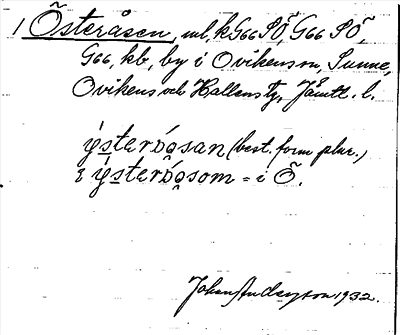 1 Österåsen, ml, kG66SÖ, G66 SÖ,
G66, kb, by i Ovikens sn, Sunne,
Ovikens och Hallens tg, Jämtl. l.
ýsterɒ́san (best. form plur.)
i ýsterɒ́som = i Ö.
Johan Andersson 1932.